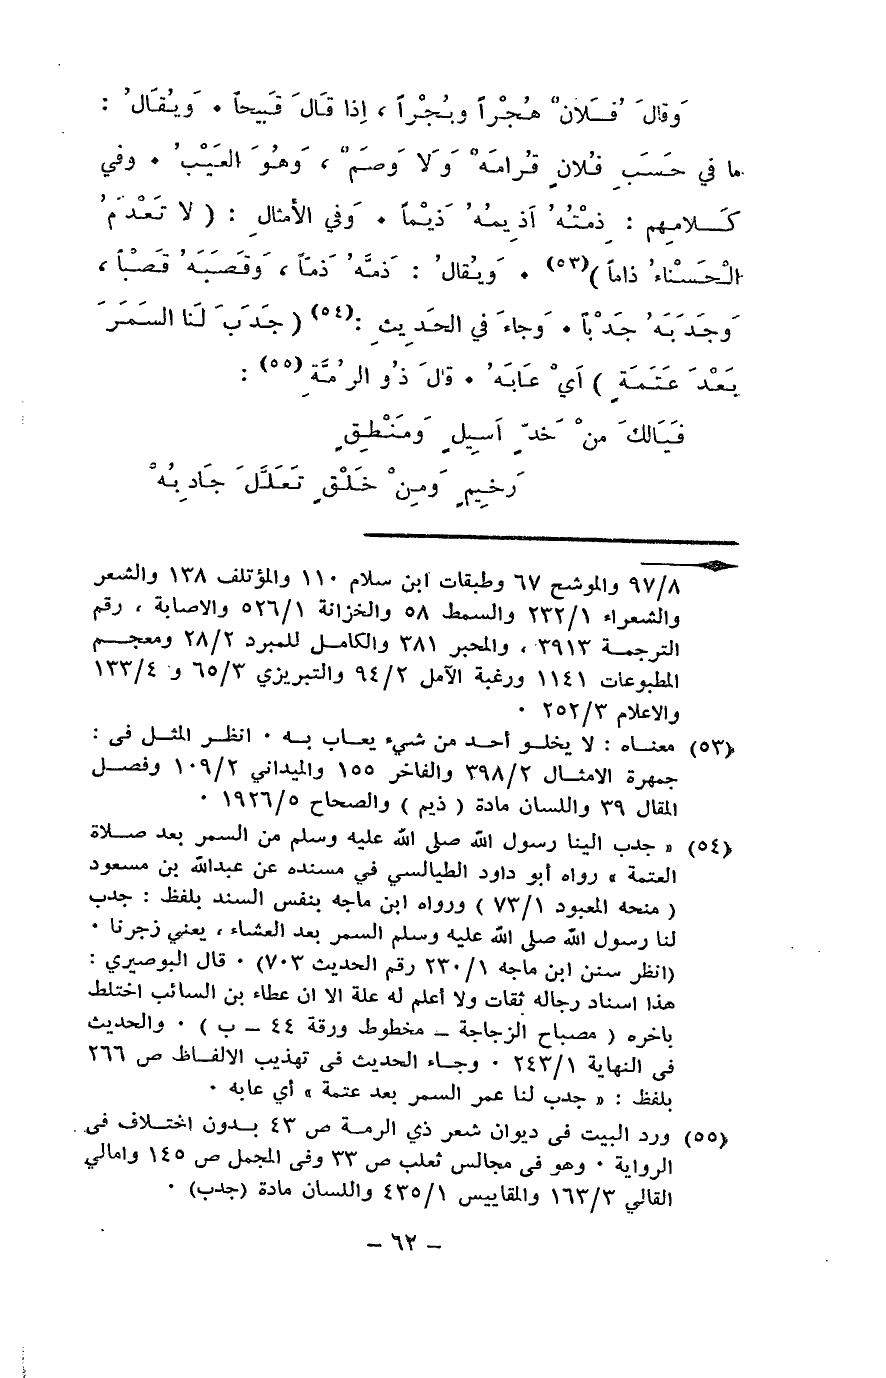 وَقالَ فُلانٌ هُجْراً وبُجْراً ، إذا قالَ قَبيحاً • وَيُقالُ :
ما في حَسَبِ فُلانٍ قُرامَةٌ وَلا وَصْمٌ ، وَهُوَ العَيْبُ • وفي
كَـلامِهِم : ذِمْتُهُ أذِيمُهُ ذَيْماً • وَفي الأمْثالِ : ( لا تَعْدَمُ
الْحَسْناءُ ذاماً )(٥٣) • وَيُقالُ : ذَمَّهُ ذَمّاً ، وَقَصَبَهُ قَصْباً ،
وَجَدَبَهُ جَدْباً • وَجاءَ في الحَديثِ :(٥٤) ( جَدَبَ لَنا السَمَرَ
بَعْدَ عَتَمَةٍ ) أيْ عابَهُ • قالَ ذُو الرُمَّةِ (٥٥) :
فَيَالَكَ مِنْ خَدٍّ أسِيلٍ وَمَنْطِقٍ
رَخِيمٍ وَمِنْ خَلْقٍ تَعَلَّلَ جَادِبُهْ
٩٧/٨ والموشح ٦٧ وطبقات ابن سلام ١١٠ والمؤتلف ١٣٨ والشعر
والشعراء ٢٣٢/١ والسمط ٥٨ والخزانة ٥٢٦/١ والاصابة ، رقم
الترجمــة ٣٩١٣ ، والمحبر ٣٨١ والكامــل للمبرد ٢٨/٢ ومعجــم
المطبوعات ١١٤١ ورغبة الآمل ٩٤/٢ والتبريزي ٦٥/٣ و ١٣٣/٤
والاعلام ٢٥٢/٣ •
(٥٣) معنــاه : لا يخلــو أحــد من شيء يعــاب بــه • انظــر المثــل فى :
جمهرة الامثــال ٣٩٨/٢ والفاخر ١٥٥ والميداني ١٠٩/٢ وفصــل
المقال ٣٩ واللسان مادة ( ذيم ) والصحاح ١٩٢٦/٥ •
(٥٤) « جدب الينا رسول الله صلى الله عليه وسلم من السمر بعد صــلاة
العتمة » رواه أبو داود الطيالسي في مسنده عن عبدالله بن مسعود
( منحه المعبود ٧٣/١ ) ورواه ابن ماجه بنفس السند بلفظ : جدب
لنا رسول الله صلى الله عليه وسلم السمر بعد العشاء ، يعني زجرنا •
(انظر سنن ابن ماجه ٢٣٠/١ رقم الحديث ٧٠٣) • قال البوصيري :
هذا اسناد رجاله ثقات ولا أعلم له علة الا ان عطاء بن السائب اختلط
باخره ( مصباح الزجاجة ــ مخطوط ورقة ٤٤ ــ ب ) • والحديث
فى النهاية ٢٤٣/١ • وجــاء الحديث فى تهذيب الالفــاظ ص ٢٦٦
بلفظ : « جدب لنا عمر السمر بعد عتمة » أي عابه •
(٥٥) ورد البيت فى ديوان شعر ذي الرمــة ص ٤٣ بــدون اختــلاف فى
الرواية • وهو فى مجالس ثعلب ص ٣٣ وفى المجمل ص ١٤٥ وامالي
القالي ١٦٣/٣ والمقاييس ٤٣٥/١ واللسان مادة (جدب) •
– ٦٢ –